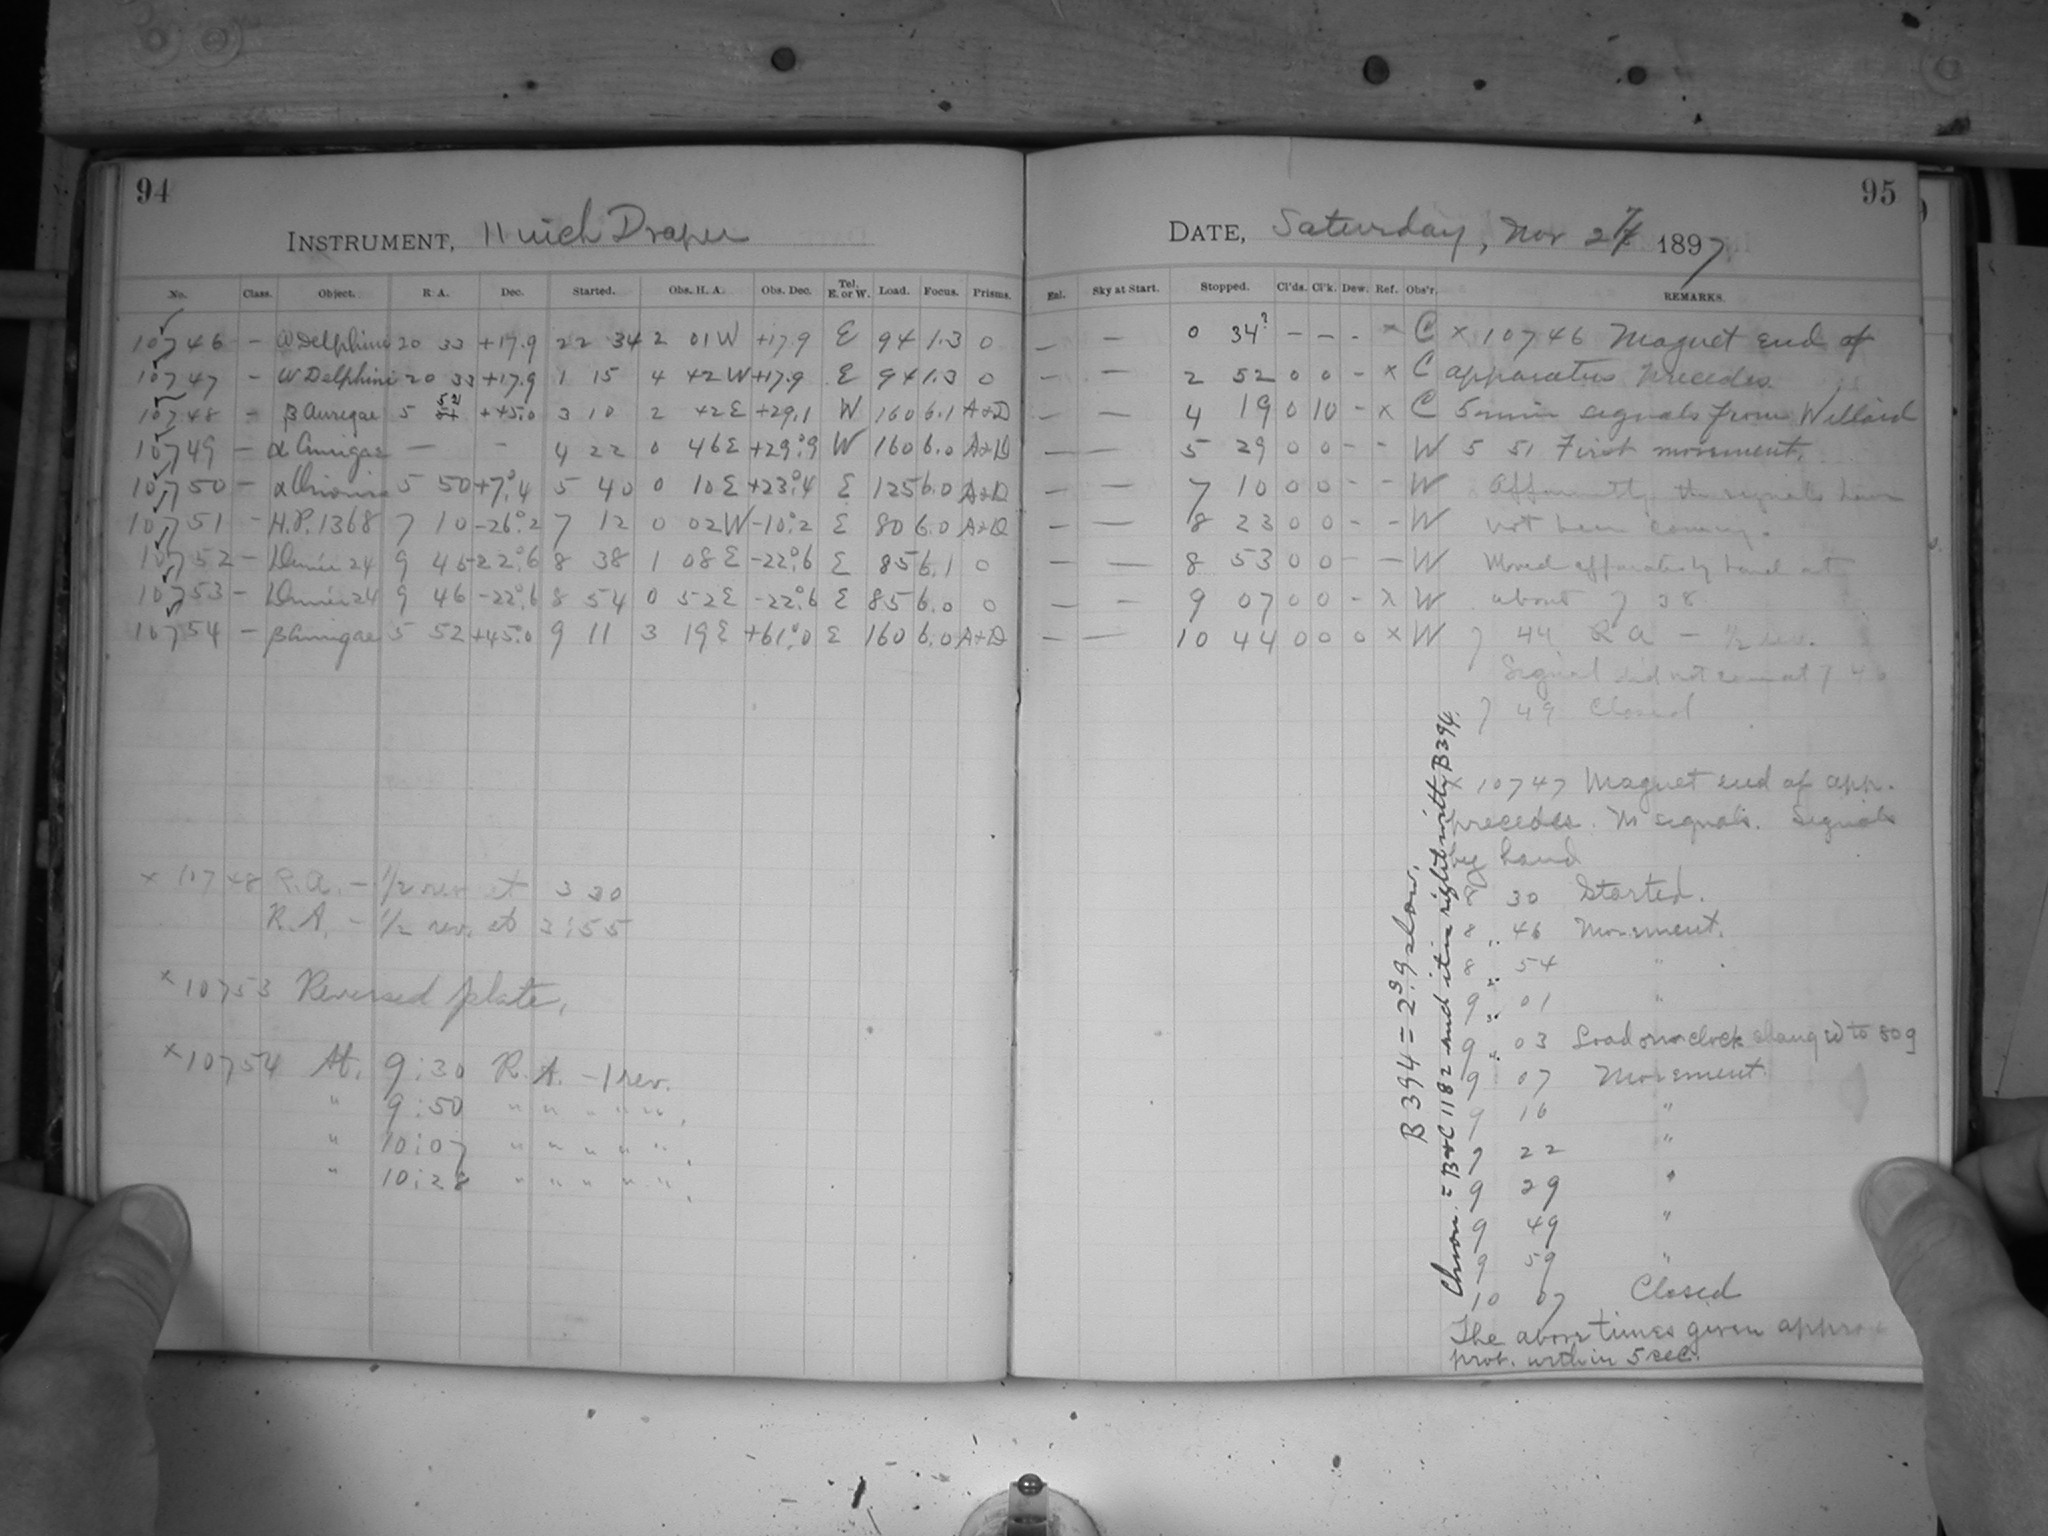 94
INSTRUMENT, 11 inch Draper
No. Class. Object. R. A. Dec. Started. Obs. H. A. Obs. Dec. Tel. E. or W. Load. Focus. Prisms.
10746 – ω Delphini 20 33 +17.9 22 34 2 01 W +17.9 E 94 1.3 0
10747 – ω Delphini 20 33 +17.9 1 15 4 42 W +17.9 E 94 1.3 0
10748 – β Aurigae 5 52 +45.0 3 10 2 42 E +29.1 W 160 6.1 A+D
10749 – α Aurigae – – 4 22 0 46 E +29°.9 W 160 6.0 A+D
10750 – α Orionis 5 50 +7°.4 5 40 0 10 E +23°.4 E 125 6.0 A+D
10751 – H.P. 1368 7 10 -26°.2 7 12 0 02 W -10°.2 E 80 6.0 A+D
10752 – Dunér 24 9 46 -22°.6 8 38 1 08 E -22°.6 E 85 6.1 0
10753 – Dunér 24 9 46 -22°.6 8 54 0 52 E -22°.6 E 85 6.0 0
10754 – β Aurigae 5 52 +45°.0 9 11 3 19 E +61°.0 E 160 6.0 A+D
x 10748 R.A. – 1/2 rev. at 3 30
R.A. – 1/2 rev. at 3:55
x 10753 Reversed plate.
x 10754 At. 9:30 R.A. – 1 rev.
" 9:50 " " " " "
" 10:07 " " " " "
" 10:28 " " " " "
95
DATE, Saturday, Nov 27 1897
Enl. Sky at Start. Stopped. Cl'ds. Cl'k. Dew. Ref. Obs'r. REMARKS.
– – 0 34? – – – x C x 10746 Magnet end of
– – 2 52 0 0 – x C apparatus precedes
– – 4 19 0 10 – x C 5 min signals from Willard
– – 5 29 0 0 – – W 5 51 First movement.
– – 7 10 0 0 – – W Apparently the signals have
– – 8 23 0 0 – – W not been coming.
– – 8 53 0 0 – – W Moved apparatus by hand at
– – 9 07 0 0 – x W about 7 38
– – 10 44 0 0 0 x W 7 44 R A – 1/2 rev.
Signal did not come at 7 40
7 49 Closed
x 10747 Magnet end of app.
precedes. M signals. Signals
by hand
8 30 Started.
8 46 Movement.
8 54 "
9 01 "
9 03 Load on clock changed to 80 g
9 07 Movement.
9 16 "
9 22 "
9 29 "
9 49 "
9 59 "
10 07 Closed
The above times given approx
prob. within 5 sec.
B 394 = 2s.9 slow.
Chron. = B&C 1182 and it is right with B 394.